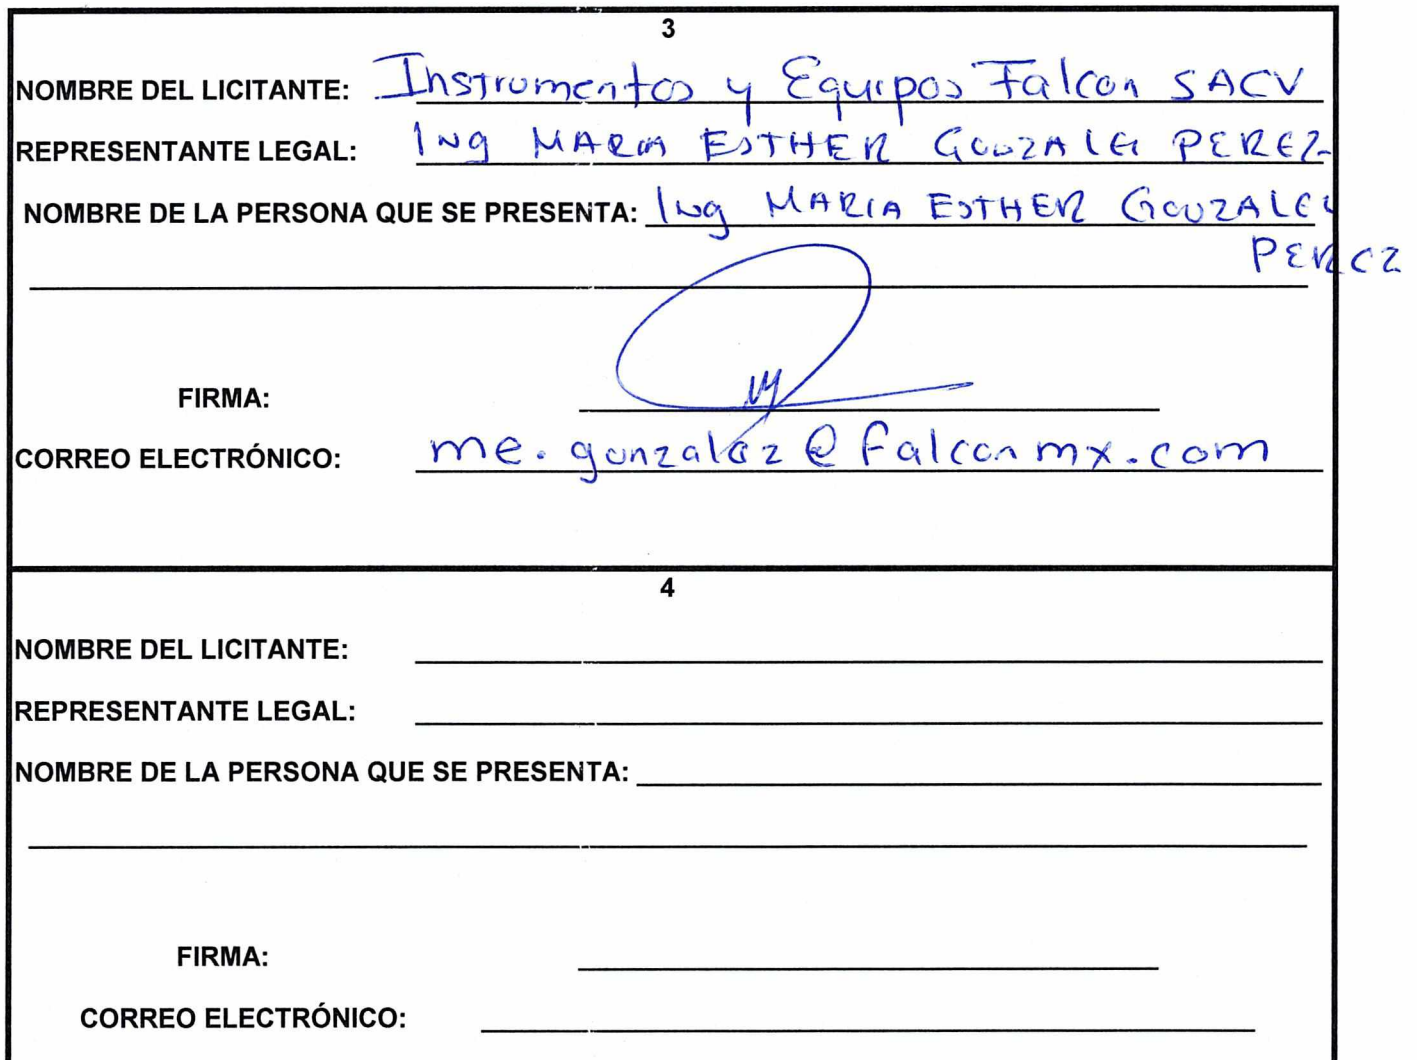 3
NOMBRE DEL LICITANTE: Instrumentos y Equipos Falcon SACV
REPRESENTANTE LEGAL: Ing MARIA ESTHER GONZALEZ PEREZ
NOMBRE DE LA PERSONA QUE SE PRESENTA: Ing MARIA ESTHER GONZALEZ
PEREZ
FIRMA:
CORREO ELECTRÓNICO: me.gonzalez@falconmx.com
4
NOMBRE DEL LICITANTE:
REPRESENTANTE LEGAL:
NOMBRE DE LA PERSONA QUE SE PRESENTA:
FIRMA:
CORREO ELECTRÓNICO: